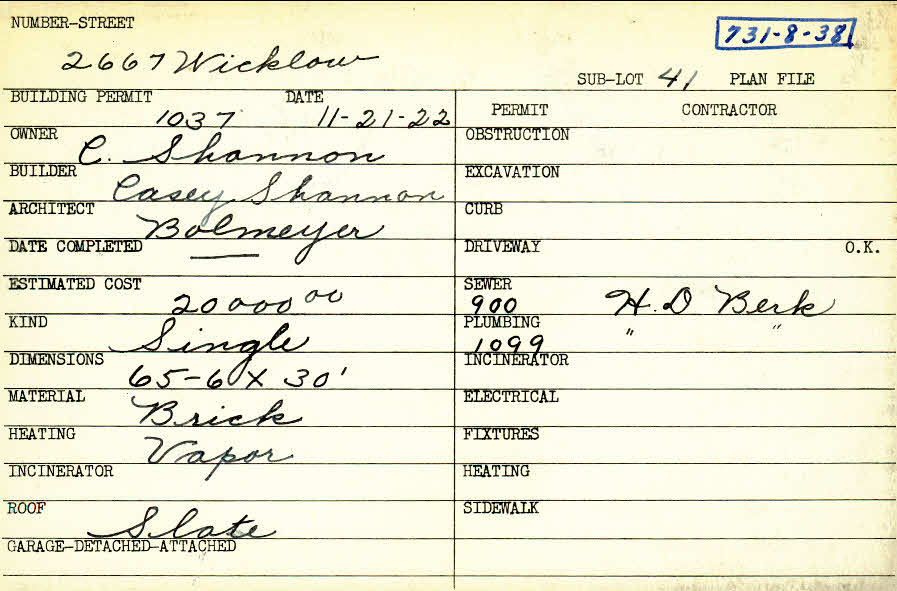 NUMBER-STREET
731-8-38
2667 Wicklow
SUB-LOT 41 PLAN FILE
BUILDING PERMIT DATE
1037 11-21-22
PERMIT CONTRACTOR
OWNER C. Shannon
OBSTRUCTION
BUILDER Casey Shannon
EXCAVATION
ARCHITECT Bolmeyer
CURB
DATE COMPLETED —
DRIVEWAY O.K.
ESTIMATED COST 20000 00
SEWER
900 H. D Berk
KIND Single
PLUMBING " "
1099
DIMENSIONS 65-6 X 30'
INCINERATOR
MATERIAL Brick
ELECTRICAL
HEATING Vapor
FIXTURES
INCINERATOR
HEATING
ROOF Slate
SIDEWALK
GARAGE-DETACHED-ATTACHED